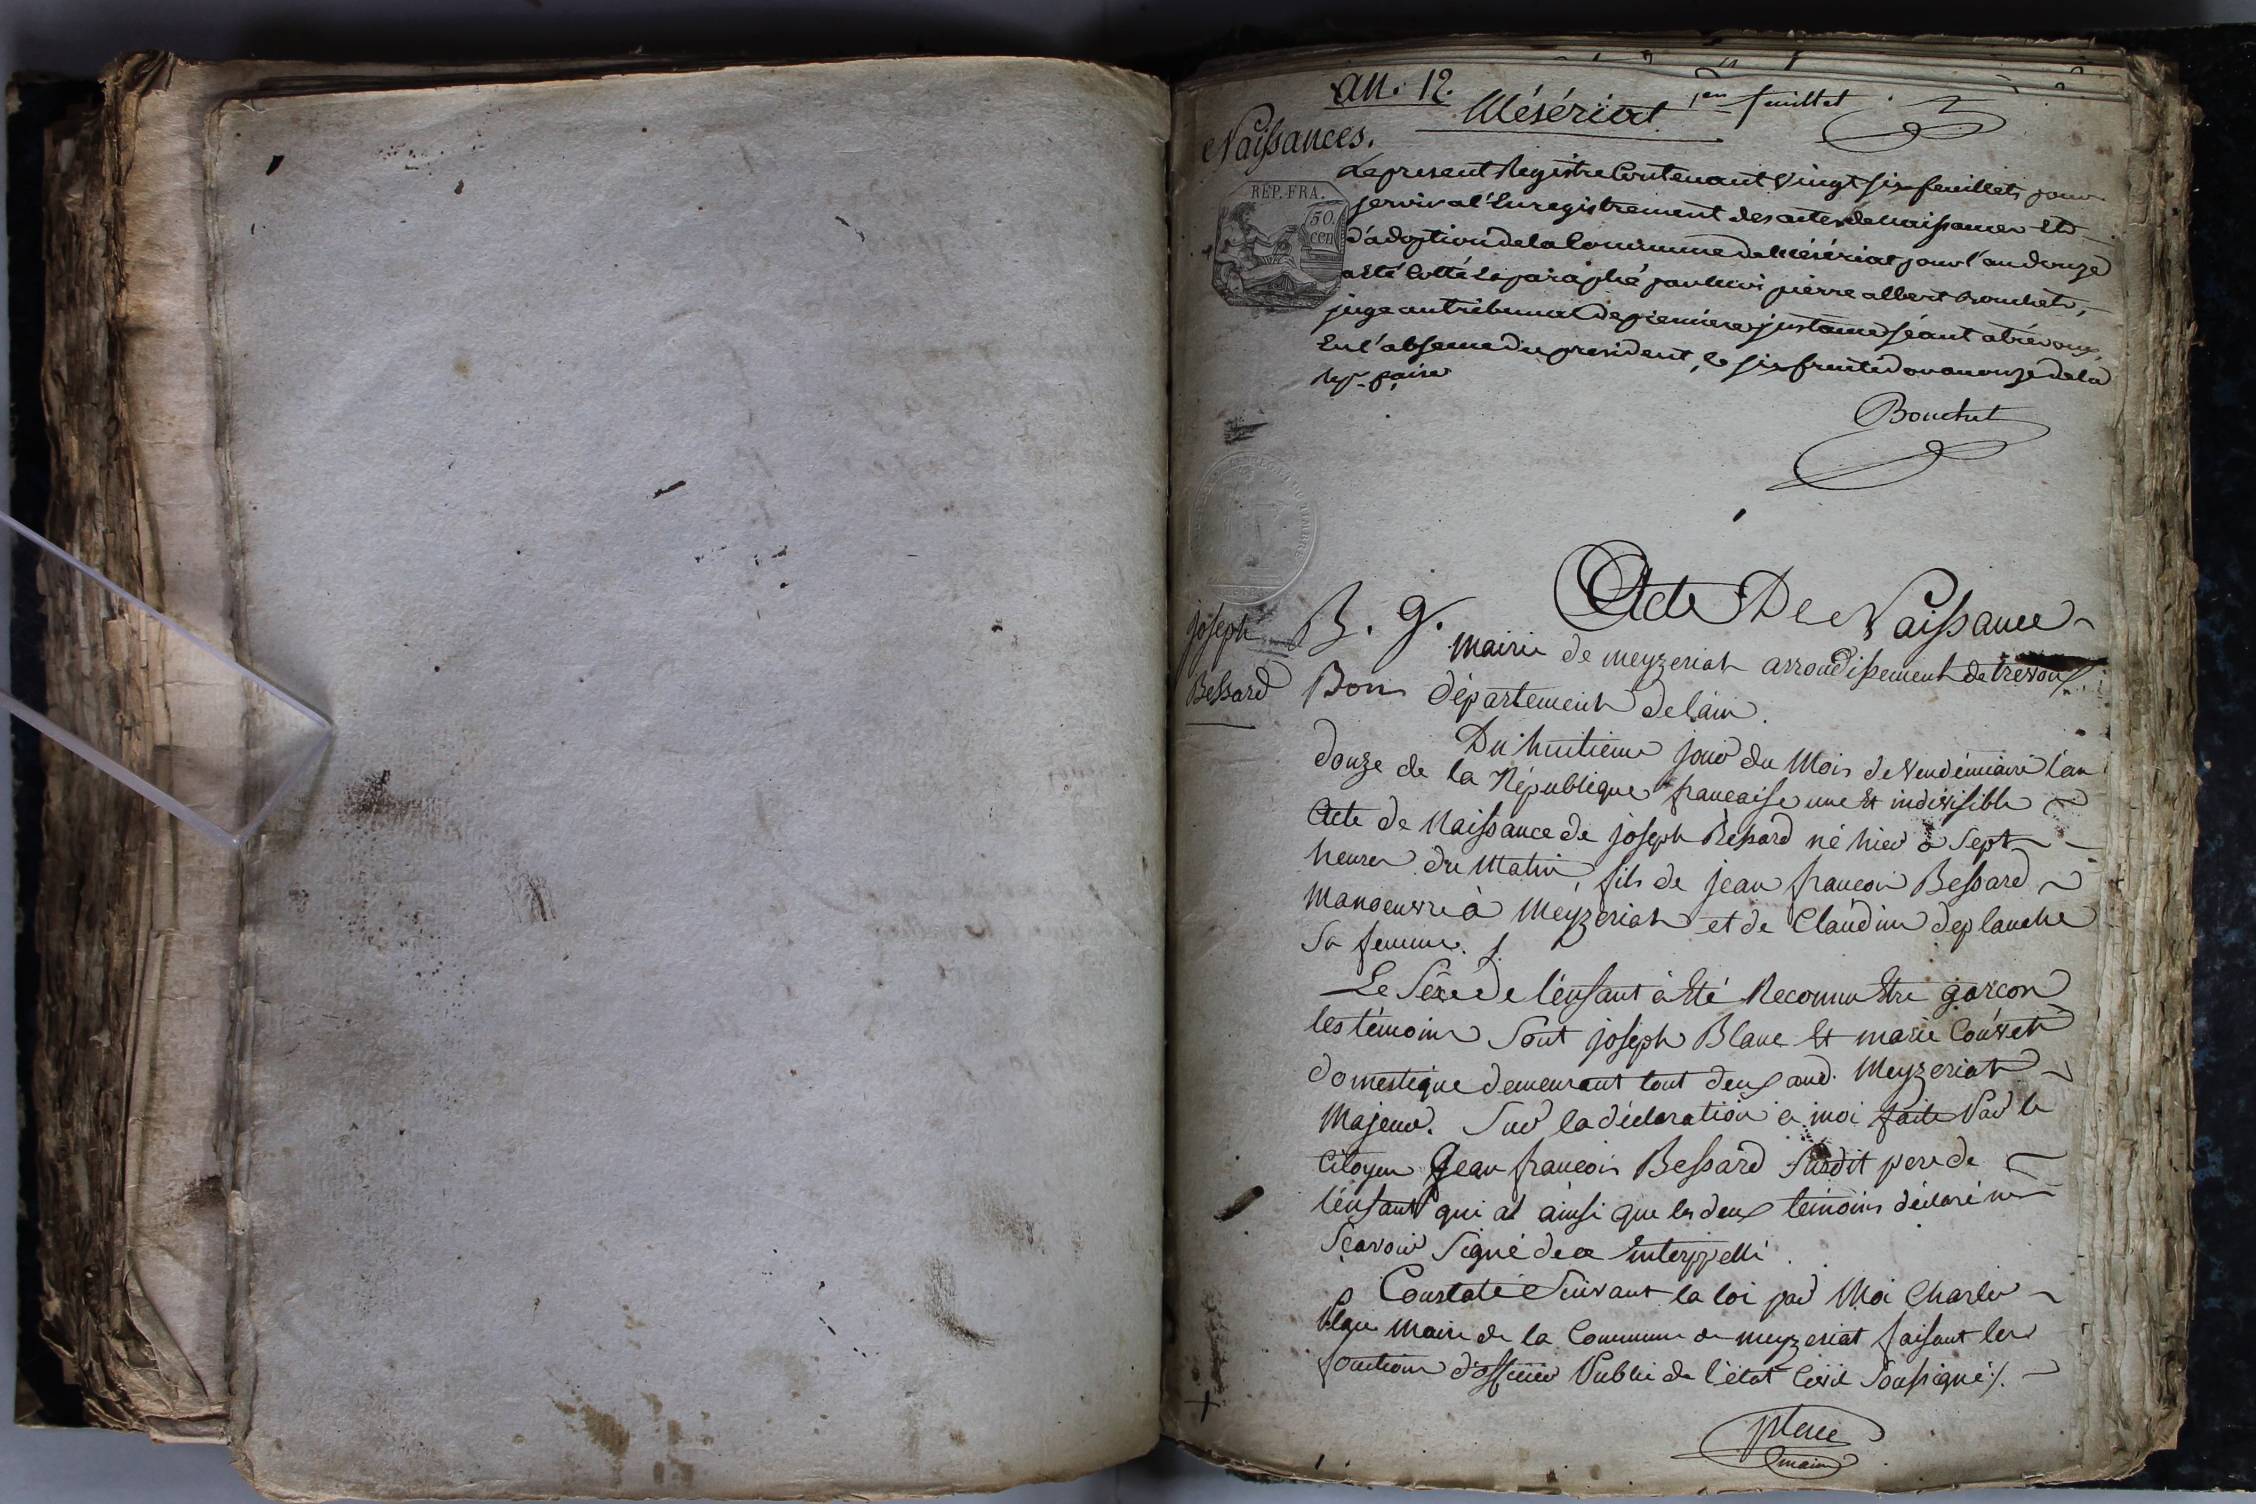 an. 12.
Mésériat
1er feuillet
Naissances.
REP. FRA.
50.
cen
Le present Registre Contenant Vingt six feuillets pour
servir a l'Enregistrement des actes de naissances et
d'adoption de la Commune de Mésériat pour l'an douze
a Eté Cotté & paraphé par nous pierre albert Bouchet,
juge au tribunal de premiere jnstance séant a trévoux,
En l'absence du president, le six fructidor an onze de la
Rep. fçaise
Bouchet
Acte De Naissance
joseph
Bessard
B. g.
Bon
Mairie de meyzeriat arrondissement de trevoux
département de lain.
Du huitieme jour du Mois de Vendémiaire l'an
douze de la République francaise une Et indivisible
Acte de Naissance de joseph Bessard né hier à Sept
heures du Matin, fils de jean francois Bessard
Manoeuvre à Meyzériat et de Claudine deplanche
Sa femme.
Le Séxe de l'énfant à Eté Reconnu Etre garcon
les témoins Sont joseph Blanc Et marie Couvet
domestique demeurant tout deux aud. Meyzeriat
Majeur. Sur la déclaration a moi faite Par le
Citoyen Jean francois Bessard Susdit pere de
l'énfant qui at ainsi que les deux témoins déclaré ne
Sçavoir Signé de ce Enterppellé.
Constaté Suivant la loi par Moi Charles
Maire de la Commune de meyzeriat faisant les
fonctions d'officier Public de l'état Civil Soussigné.
maire